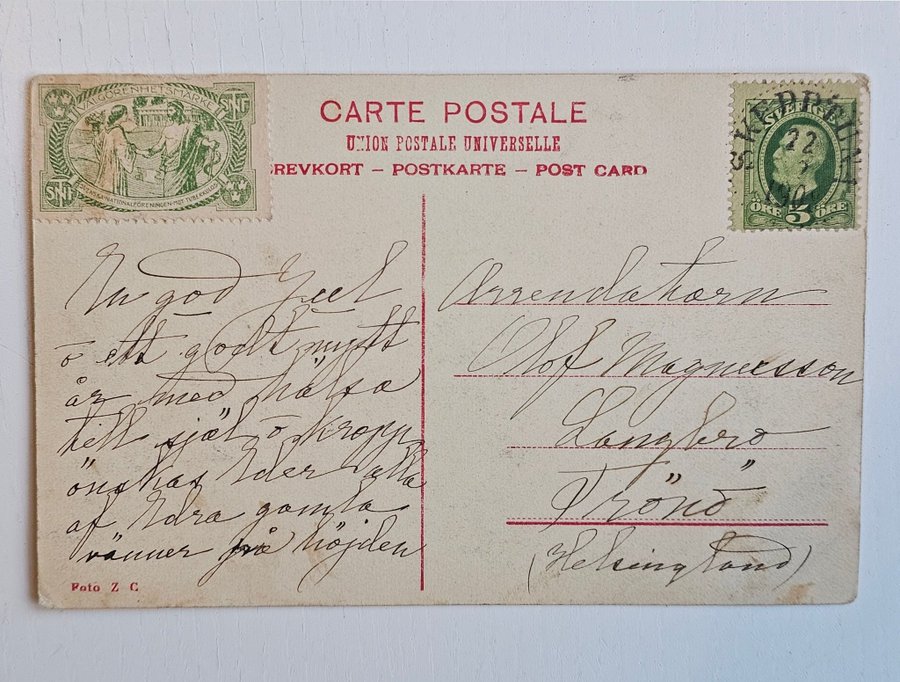 VÄLGÖRENHETSMÄRKE
SNF
SNF
SVENSKA NATIONALFÖRENINGEN MOT TUBERKULOS
CARTE POSTALE
UNION POSTALE UNIVERSELLE
BREVKORT – POSTKARTE – POST CARD
SVERIGE
22
190
ÖRE 5 ÖRE
En god Jul
o ett godt nytt
år med hälsa
till själ o kropp
önskas Eder alla
af Edra gamla
vänner på höjden
Foto Z C
Arrendatorn
Olof Magnusson
Långbro
Trönö
(Helsingland)